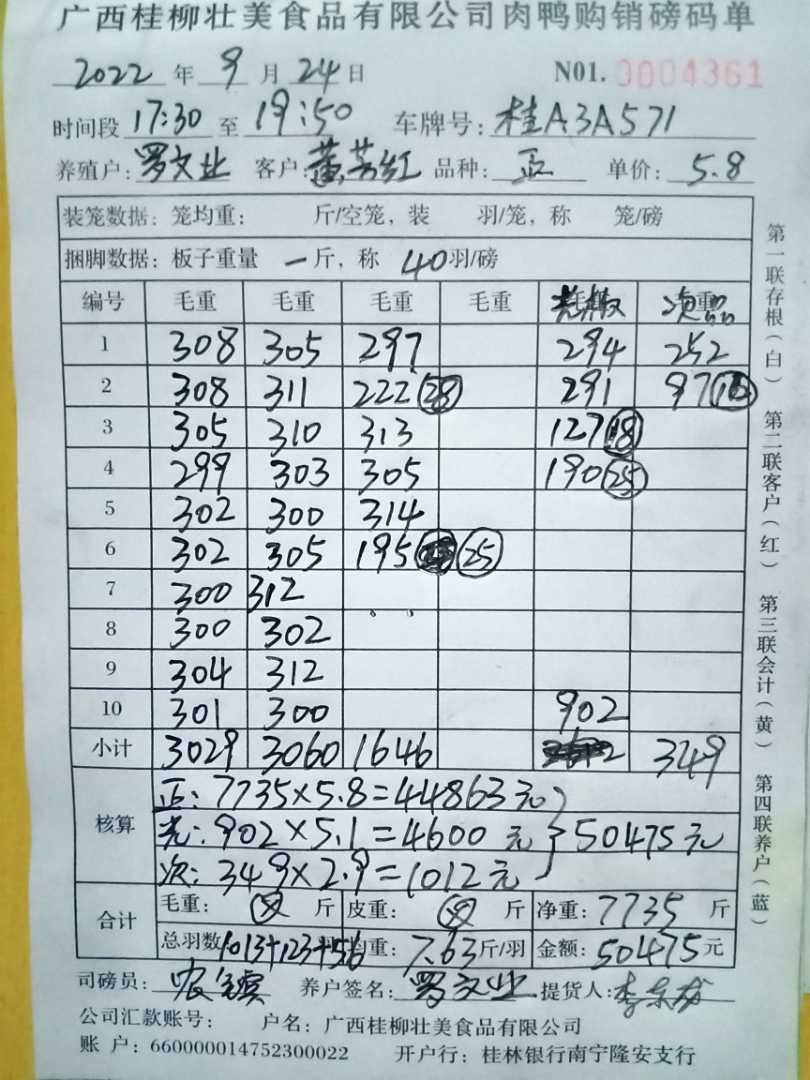 广西桂柳壮美食品有限公司肉鸭购销磅码单
2022 年 9 月 24 日 N01. 0004361
时间段 17:30 至 19:50 车牌号: 桂A3A571
养殖户: 罗文业 客户: 黄芳红 品种: 正 单价: 5.8
装笼数据: 笼均重: 斤/空笼, 装 羽/笼, 称 笼/磅
捆脚数据: 板子重量 一斤, 称 40羽/磅
编号 毛重 毛重 毛重 毛重 次品
1 308 305 297 294 252
2 308 311 222 28 291 97
3 305 310 313 127 18
4 299 303 305 190 25
5 302 300 314
6 302 305 195 25
7 300 312
8 300 302
9 304 312
10 301 300 902
小计 3029 3060 1646 349
核算 正: 7735×5.8=44863元
光: 902×5.1=4600元 50475元
次: 349×2.9=1012元
合计 毛重: 斤 皮重: 斤 净重: 7735 斤
总羽数 1013+123+56 均重: 7.63斤/羽 金额: 50475元
司磅员: 养户签名: 罗文业 提货人:
公司汇款账号: 户名: 广西桂柳壮美食品有限公司
账 户: 660000014752300022 开户行: 桂林银行南宁隆安支行
第一联存根(白) 第二联客户(红) 第三联会计(黄) 第四联养户(蓝)